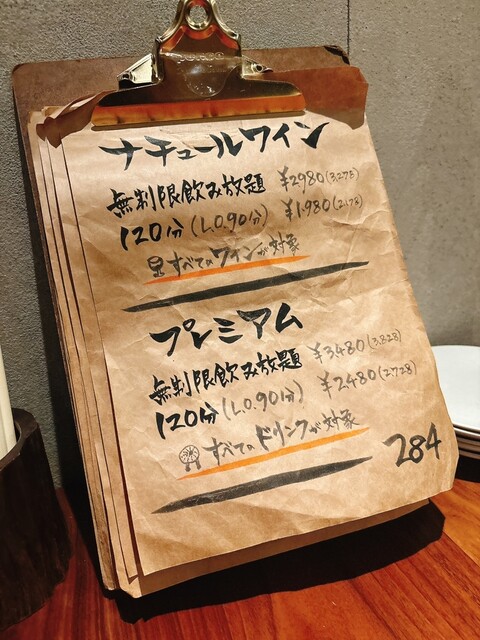 ナチュールワイン
無制限飲み放題 ¥2980(3,278)
120分(L.O.90分) ¥1,980(2,178)
すべてのワインが対象
プレミアム
無制限飲み放題 ¥3480(3,828)
120分(L.O.90分) ¥2480(2,728)
すべてのドリンクが対象
284